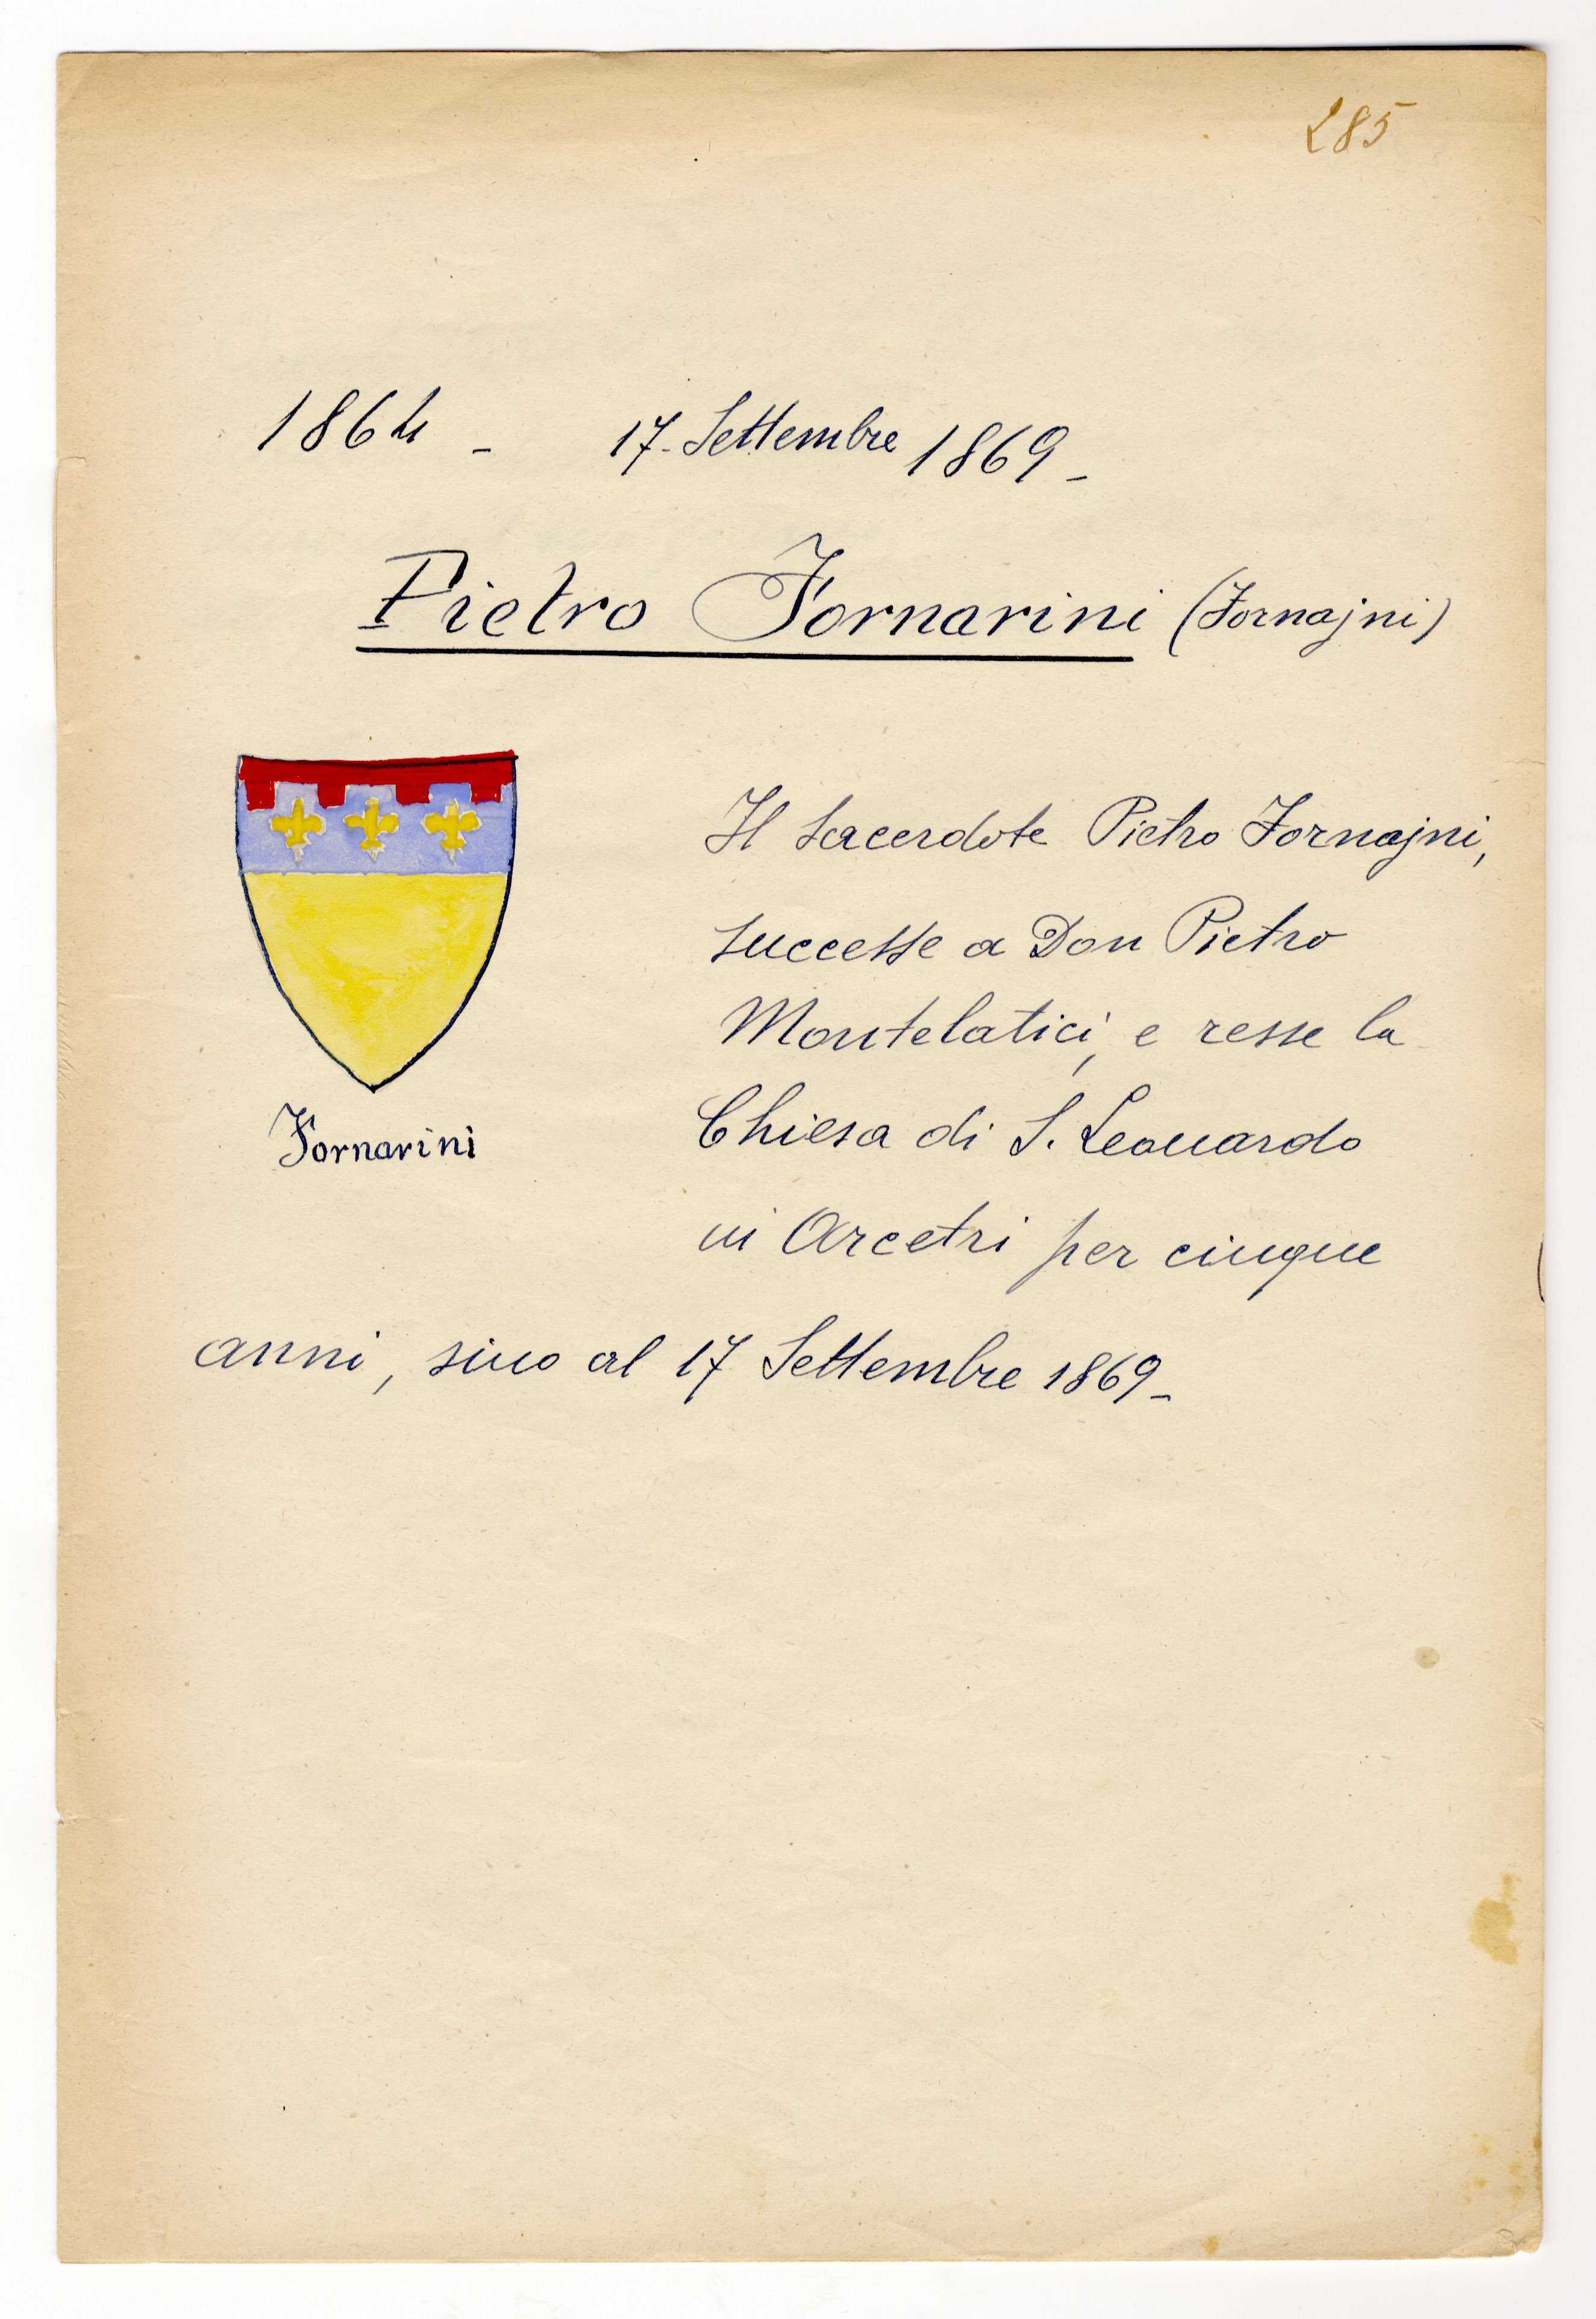 285
1864 - 17. Settembre 1869 -
Pietro Fornarini (Fornajni)
Il sacerdote Pietro Fornajni,
successe a Don Pietro
Montelatici, e resse la
Chiesa di S. Leonardo
in Arcetri per cinque
anni, sino al 17 Settembre 1869 -
Fornarini